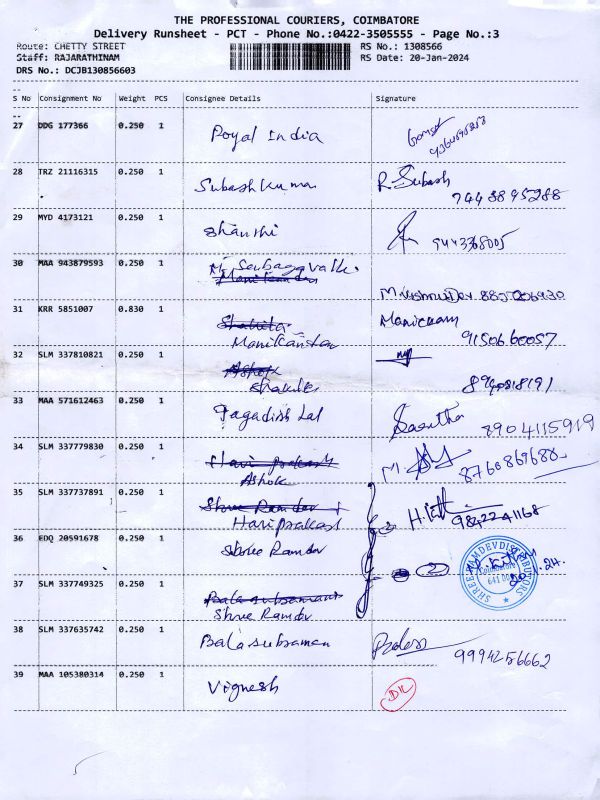 THE PROFESSIONAL COURIERS, COIMBATORE
Delivery Runsheet - PCT - Phone No.:0422-3505555 - Page No.:3
Route: CHETTY STREET RS No.: 1308566
Staff: RAJARATHINAM RS Date: 20-Jan-2024
DRS No.: DCJB130856603
S No Consignment No Weight PCS Consignee Details Signature
27 DDG 177366 0.250 1 Royal India
28 TRZ 21116315 0.250 1 Subash Kumar R. Subash
7448895288
29 MYD 4173121 0.250 1 Shanthi 9443368005
30 MAA 943879593 0.250 1
Manikandan
31 KRR 5851007 0.830 1 Manickam
Manikandan 9150660057
32 SLM 337810821 0.250 1 Ashok
33 MAA 571612463 0.250 1 Jagadish Lal
8904115919
34 SLM 337779830 0.250 1 Hari prakash M.
Ashok 8760869688
35 SLM 337737891 0.250 1 Shree Ramdev
Hariprakash 9842241168
36 EDQ 20591678 0.250 1 Shree Ramdev
2
SHREE RAMDEV DISTRIBUTORS
Coimbatore
37 SLM 337749325 0.250 1 Balasubramani
Shree Ramdev
38 SLM 337635742 0.250 1 Balasubraman
9994256662
39 MAA 105380314 0.250 1 Vignesh